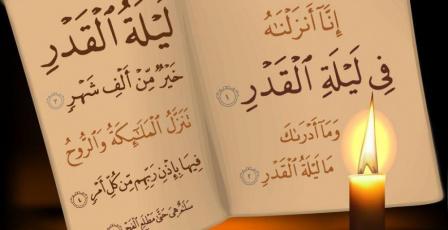 إِنَّآ أَنزَلْنَٰهُ
فِي لَيْلَةِ ٱلْقَدْرِ ١
وَمَآ أَدْرَىٰكَ
مَا لَيْلَةُ ٱلْقَدْرِ ٢
لَيْلَةُ ٱلْقَدْرِ
خَيْرٌ مِّنْ أَلْفِ شَهْرٍ ٣
تَنَزَّلُ ٱلْمَلَٰٓئِكَةُ وَٱلرُّوحُ
فِيهَا بِإِذْنِ رَبِّهِم مِّن كُلِّ أَمْرٍ ٤
سَلَٰمٌ هِيَ حَتَّىٰ مَطْلَعِ ٱلْفَجْرِ